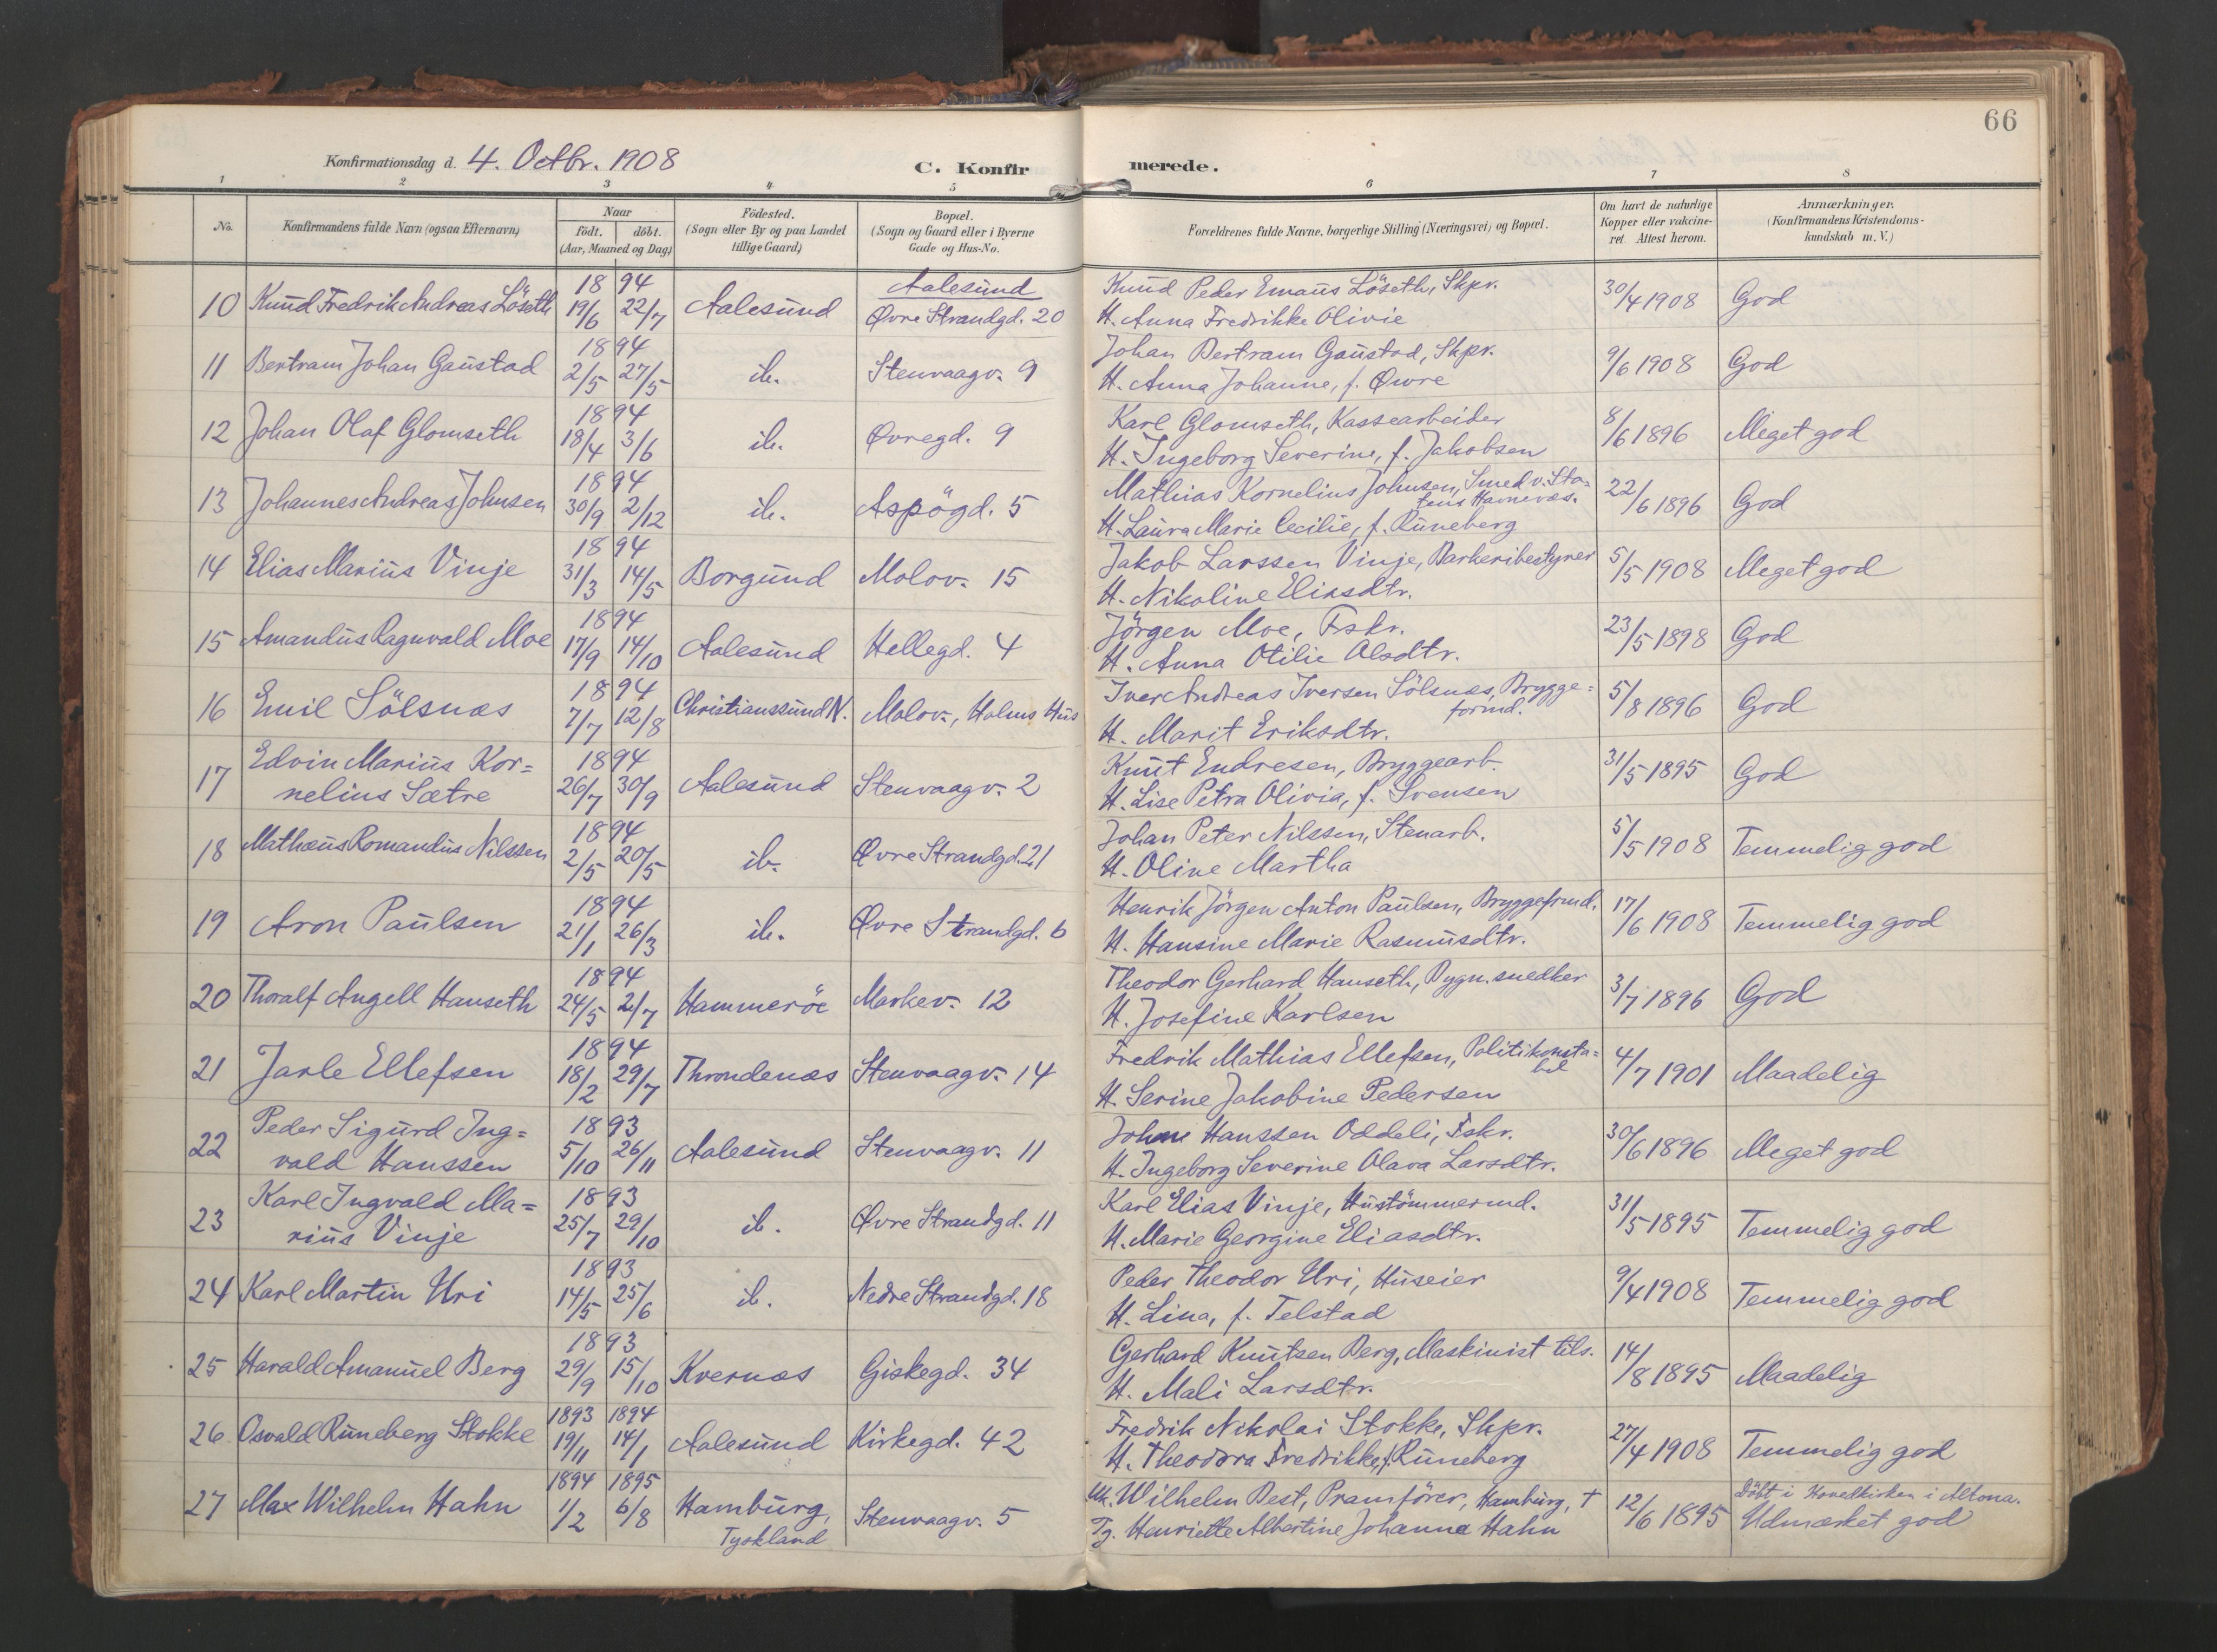 66
Konfirmationsdag d. 4. Octbr. 1908
C. Konfirmerede.
1 2 3 4 5 6 7 8
No.
Konfirmandens fulde Navn (ogsaa Efternavn)
Naar
födt. döbt.
(Aar, Maaned og Dag)
Födested.
(Sogn eller By og paa Landet
tillige Gaard)
Bopæl.
(Sogn og Gaard eller i Byerne
Gade og Hus-No.
Forældrenes fulde Navne, borgerlige Stilling (Næringsvei) og Bopæl.
Om havt de naturlige
Kopper eller vakcine-
ret. Attest herom.
Anmærkninger.
(Konfirmandens Kristendoms-
kundskab m. V.)
10 Knud Fredrik Andreas Löseth 1894 19/6 22/7 Aalesund Aalesund Øvre Strandgd. 20
Knud Peder Emaus Löseth, Skpr.
H. Anna Fredrikke Olivie
30/4 1908 God
11 Bertram Johan Gaustad 1894 2/5 27/5 ib. Stenvaagv. 9
Johan Bertram Gaustad, Skpr.
H. Anna Johanne, f. Øwre
9/6 1908 God
12 Johan Olaf Glomseth 1894 18/4 3/6 ib. Øvregd. 9
Karl Glomseth, Kassearbeider
H. Ingeborg Severine, f. Jakobsen
8/6 1896 Meget god
13 Johannes Andreas Johnsen 1894 30/9 2/12 ib. Aspögd. 5
Mathias Kornelius Johnsen, Smed v. Sta-
tens Havnevæs.
H. Laura Marie Cecilie, f. Runeberg
22/6 1896 God
14 Elias Marius Vinje 1894 31/3 14/5 Borgund Molov. 15
Jakob Larssen Vinje, Barkeribestyrer
H. Nikoline Eliasdtr.
5/5 1908 Meget god
15 Amandus Ragnvald Moe 1894 17/9 14/10 Aalesund Hellegd. 4
Jörgen Moe, Fskr.
H. Anna Otilie Olsdtr.
23/5 1898 God
16 Emil Sölsnæs 1894 7/7 12/8 Christianssund N. Molov., Holms Hus
Iver Andreas Iversen Sölsnæs, Brygge=
formd.
H. Marit Eriksdtr.
5/8 1896 God
17 Edvin Marius Kor=
nelius Sætre 1894 26/7 30/9 Aalesund Stenvaagv. 2
Knut Endresen, Bryggearb.
H. Lise Petra Olivia, f. Svensen
31/5 1895 God
18 Mathæus Romandus Nilssen 1894 2/5 20/5 ib. Øvre Strandgd. 21
Johan Peter Nilssen, Stenarb.
H. Oline Martha
5/5 1908 Temmelig god
19 Aron Paulsen 1894 21/1 26/3 ib. Øvre Strandgd. 6
Henrik Jörgen Anton Paulsen, Bryggefrmd.
H. Hansine Marie Rasmusdtr.
17/6 1908 Temmelig god
20 Thoralf Angell Hanseth 1894 24/5 2/7 Hammeröe Markev. 12
Theodor Gerhard Hanseth, Bygn.snedker
H. Josefine Karlsen
3/7 1896 God
21 Jarle Ellefsen 1894 18/2 29/7 Throndenæs Stenvaagv. 14
Fredrik Mathias Ellefsen, Politikonsta=
bel
H. Serine Jakobine Pedersen
4/7 1901 Maadelig
22 Peder Sigurd Ing=
vald Hanssen 1893 5/10 26/11 Aalesund Stenvaagv. 11
Johan Hanssen Oddeli, Fskr.
H. Ingeborg Severine Olava Larsdtr.
30/6 1896 Meget god
23 Karl Ingvald Ma=
rius Vinje 1893 25/7 29/10 ib. Øvre Strandgd. 11
Karl Elias Vinje, Hustömmermd.
H. Marie Georgine Eliasdtr.
31/5 1895 Temmelig god
24 Karl Martin Uri 1893 14/5 25/6 ib. Nedre Strandgd. 18
Peder Theodor Uri, Huseier
H. Lina, f. Telstad
9/4 1908 Temmelig god
25 Harald Amanuel Berg 1893 29/9 15/10 Kvernæs Giskegd. 34
Gerhard Knutsen Berg, Maskinist tils.
H. Mali Larsdtr.
14/8 1895 Maadelig
26 Osvald Runeberg Stokke 1893 1894 19/11 14/1 Aalesund Kirkegd. 42
Fredrik Nikolai Stokke, Skpr.
H. Theodora Fredrikke, f. Runeberg
27/4 1908 Temmelig god
27 Max Wilhelm Hahn 1894 1895 1/2 6/8 Hamburg,
Tyskland Stenvaagv. 5
Uk. Wilhelm Best, Pramförer, Hamburg, †
Tj. Henriette Albertine Johanna Hahn
12/6 1895 Döbt i Hovedkirken i Altona.
Udmærket god